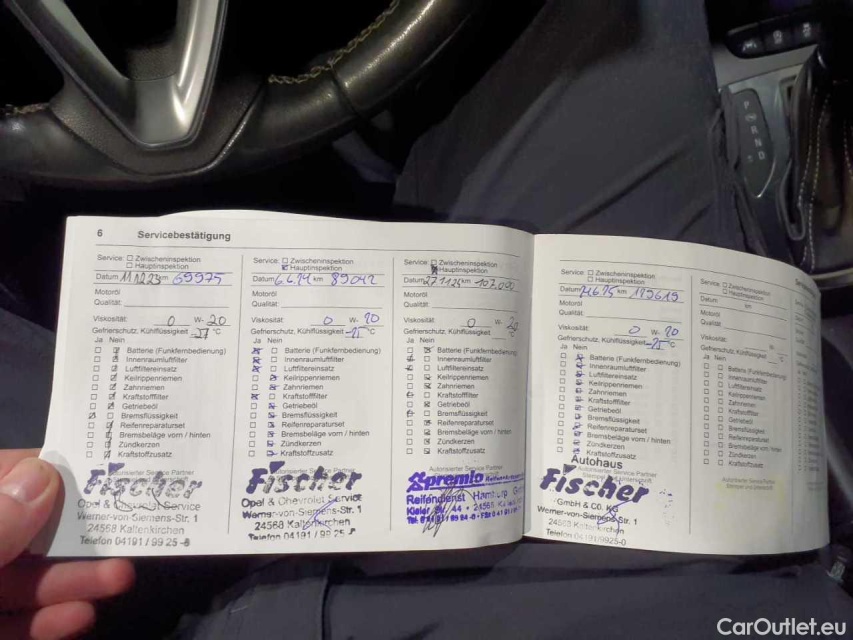 6 Servicebestätigung
Service: Zwischeninspektion
Hauptinspektion
Datum 11.12.23 km 69975
Motoröl
Qualität:
Viskosität: 0 W- 20
Gefrierschutz, Kühlflüssigkeit -27 °C
Ja Nein
Batterie (Funkfernbedienung)
Innenraumluftfilter
Luftfiltereinsatz
Keilrippenriemen
Zahnriemen
Kraftstofffilter
Getriebeöl
Bremsflüssigkeit
Reifenreparaturset
Bremsbeläge vorn / hinten
Zündkerzen
Kraftstoffzusatz
Fischer
Opel & Chevrolet Service
Werner-von-Siemens-Str. 1
24568 Kaltenkirchen
Telefon 04191 / 99 25 -
Service: Zwischeninspektion
Hauptinspektion
Datum 6.6.24 km 89042
Motoröl
Qualität:
Viskosität: 0 W- 20
Gefrierschutz, Kühlflüssigkeit -25 °C
Ja Nein
Batterie (Funkfernbedienung)
Innenraumluftfilter
Luftfiltereinsatz
Keilrippenriemen
Zahnriemen
Kraftstofffilter
Getriebeöl
Bremsflüssigkeit
Reifenreparaturset
Bremsbeläge vorn / hinten
Zündkerzen
Kraftstoffzusatz
Fischer
Opel & Chevrolet Service
Werner-von-Siemens-Str. 1
24568 Kaltenkirchen
Telefon 04191 / 99 25
Service: Zwischeninspektion
Hauptinspektion
Datum km
Motoröl
Qualität:
Viskosität: 0 W- 20
Gefrierschutz, Kühlflüssigkeit °C
Ja Nein
Batterie (Funkfernbedienung)
Innenraumluftfilter
Luftfiltereinsatz
Keilrippenriemen
Zahnriemen
Kraftstofffilter
Getriebeöl
Bremsflüssigkeit
Reifenreparaturset
Bremsbeläge vorn / hinten
Zündkerzen
Kraftstoffzusatz
Autorisierter Service Partner
premio
Reifendienst Hamburg
Kieler Str. 44 24568
Service: Zwischeninspektion
Hauptinspektion
Datum km
Motoröl
Qualität:
Viskosität: 0 W- 20
Gefrierschutz, Kühlflüssigkeit -25 °C
Ja Nein
Batterie (Funkfernbedienung)
Innenraumluftfilter
Luftfiltereinsatz
Keilrippenriemen
Zahnriemen
Kraftstofffilter
Getriebeöl
Bremsflüssigkeit
Reifenreparaturset
Bremsbeläge vorn / hinten
Zündkerzen
Kraftstoffzusatz
Autohaus
Fischer
GmbH & CO. KG
Werner-von-Siemens-Str. 1
24568 Kaltenkirchen
Telefon 04191/9925-0
Service: Zwischeninspektion
Hauptinspektion
Datum km
Motoröl
Qualität:
Viskosität: W-
Gefrierschutz, Kühlflüssigkeit °C
Ja Nein
Batterie (Funkfernbedienung)
Innenraumluftfilter
Luftfiltereinsatz
Keilrippenriemen
Zahnriemen
Kraftstofffilter
Getriebeöl
Bremsflüssigkeit
Reifenreparaturset
Bremsbeläge vorn / hinten
Zündkerzen
Kraftstoffzusatz
Autorisierter Service Partner
P
R
N
D
CarOutlet.eu